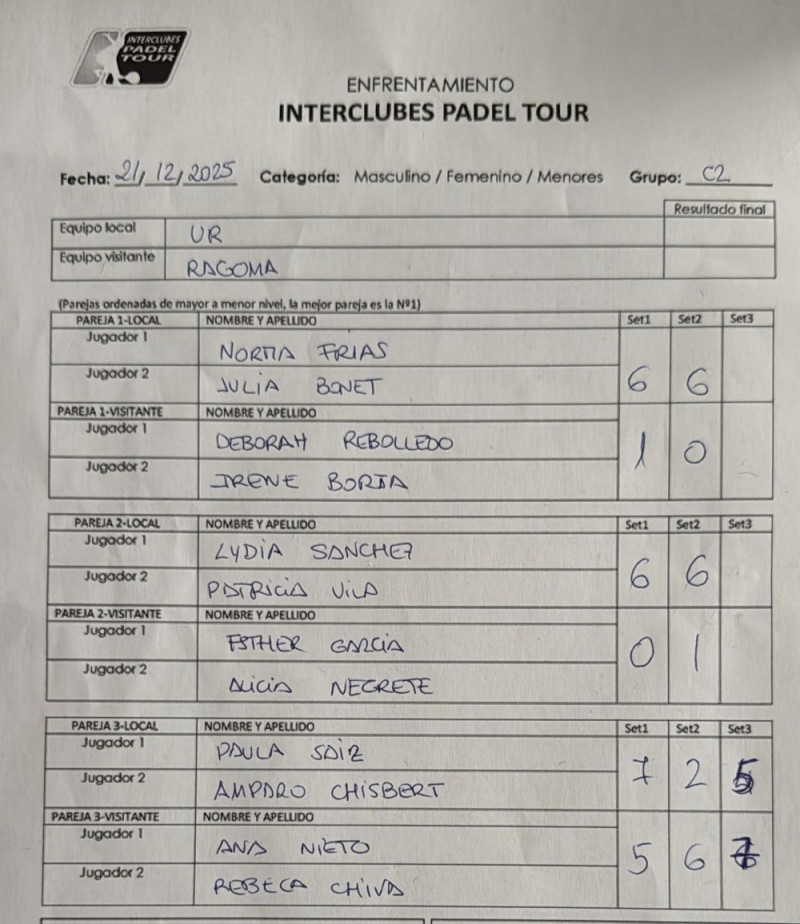 INTERCLUBES
PADEL
TOUR
ENFRENTAMIENTO
INTERCLUBES PADEL TOUR
Fecha: 21/12/2025 Categoría: Masculino / Femenino / Menores Grupo: C2
Resultado final
Equipo local UR
Equipo visitante RAGOMA
(Parejas ordenadas de mayor a menor nivel, la mejor pareja es la Nº1)
PAREJA 1-LOCAL NOMBRE Y APELLIDO Set1 Set2 Set3
Jugador 1 NORMA FRIAS
Jugador 2 JULIA BONET 6 6
PAREJA 1-VISITANTE NOMBRE Y APELLIDO
Jugador 1 DEBORAH REBOLLEDO 1 0
Jugador 2 IRENE BORJA
PAREJA 2-LOCAL NOMBRE Y APELLIDO Set1 Set2 Set3
Jugador 1 LYDIA SANCHEZ
Jugador 2 PATRICIA VILA 6 6
PAREJA 2-VISITANTE NOMBRE Y APELLIDO
Jugador 1 ESTHER GARCIA 0 1
Jugador 2 ALICIA NEGRETE
PAREJA 3-LOCAL NOMBRE Y APELLIDO Set1 Set2 Set3
Jugador 1 PAULA SAIZ
Jugador 2 AMPARO CHISBERT 7 2 5
PAREJA 3-VISITANTE NOMBRE Y APELLIDO
Jugador 1 ANA NIETO 5 6 7
Jugador 2 REBECA CHIVA